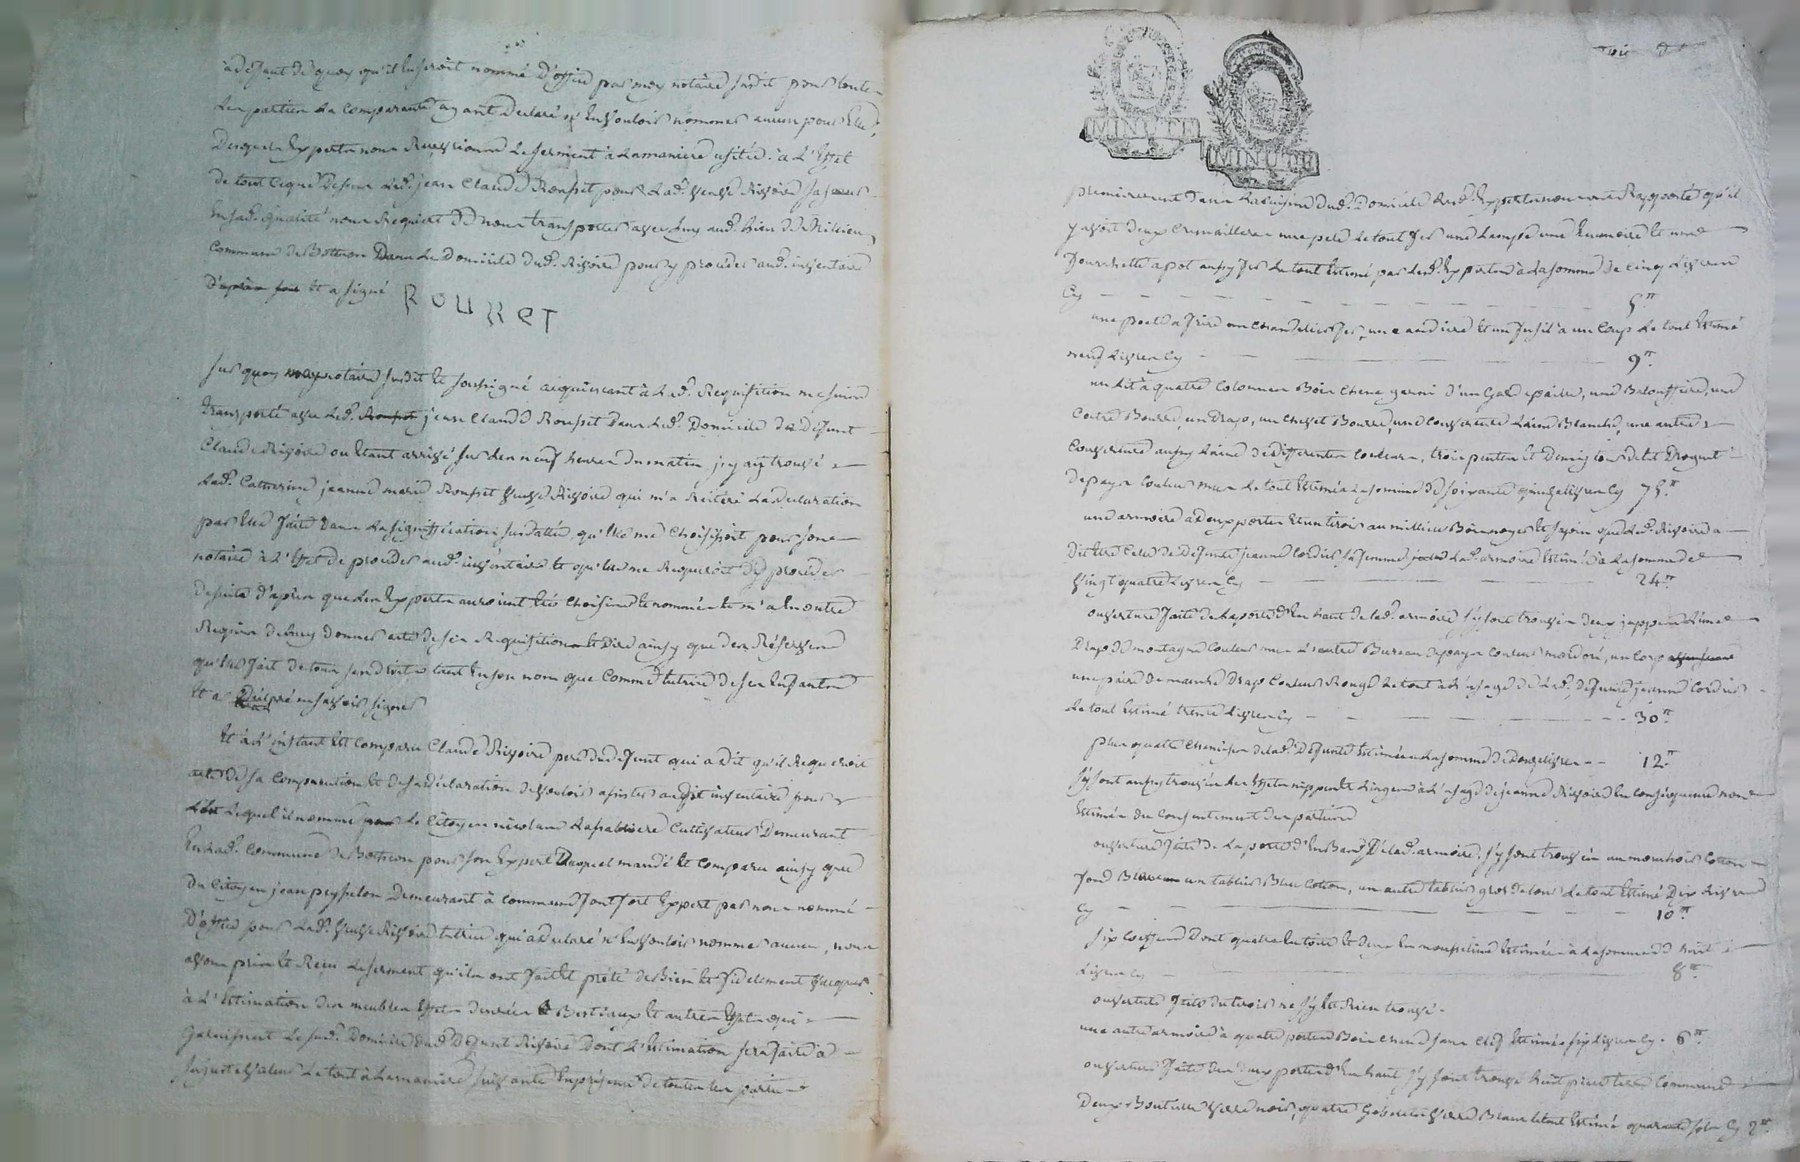 à defaut de quoy qu'il luy seroit nommé d'office par moy notaire susdit pour toute
les parties la comparante ayant declaré n'en vouloir nommer aucun pour elle,
Desquels experts nous recevrions le serment à la maniere usitée. à l'effet
de tout ce que dessus led. jean Claude Rousset pour lad. veuve Rivoire sa soeur
en sad. qualité nous requiert de nous transporter avec luy aud. lieu de
commune de Bothéon dans le domicile dud. Rivoire pour y proceder aud. inventaire
et a signé ROUSSET
sur quoy notaire susdit et soussigné acquiescant à lad. requisition me suis
transporté avec led. jean Claude Rousset dans led. domicile du defunt
Claude Rivoire ou etant arrivé sur les neuf heures du matin j'y ay trouvé
lad. Catherine jeanne marie Rousset veuve Rivoire qui m'a reiteré la declaration
par elle faite dans la signiffication susdattée qu'elle me choisissoit pour son
notaire à l'effet de proceder aud. inventaire et qu'elle me requeroit d'y proceder
de suite d'après que les experts auroient étés choisis et nommés et m'a en outre
requis de luy donner acte de ses requisitions et dire ainsy que des réserves
qu'elle fait de tous ses droits tant en son nom que comme tutrice de ses enfants
et a déclaré ne savoir signer
Et à l'instant est comparu Claude Rivoire pere dud. defunt qui a dit qu'il requeroit
acte de sa comparution et de sa déclaration de vouloir assister audit inventaire pour
lequel il nomme le Citoyen nicolas cultivateur demeurant
en lad. commune de Bothéon pour son expert lequel mandé est comparu ainsy que
du Citoyen jean peysselon demeurant à commune expert par nous nommé
d'office pour lad. veuve Rivoire tutrice qui a declaré n'en vouloir nommer aucun, nous
avons pris et reçu le serment qu'ils ont fait et prêté de bien et fidelement vacquer
à l'estimation des meubles effets denrées Bestiaux et autres effets qui
garnissent le sud. domicile dud. defunt Rivoire dont l'estimation sera faite à
sa juste valeur le tout à la maniere suivante en présence de toutes les parties
MINUTE
MINUTE
premierement dans la cuisine dud. domicile lesd. experts nous ont rapporté qu'il
y avoit deux cremailleres une pele le tout fer une lampe une ecumoire et une
fourchette a pot aussy fer le tout estimé par lesd. experts à la somme de cinq livres
Cy 5 ₶
une poele a frire un chandelier fer, une et un fusil à un coup le tout estimé
neuf livres Cy 9 ₶
un lit à quatre colonnes Bois chene garni d'un gard paille, une Balouffiere, une
coitre Bourre, un drap, un chevet Bourre, une couverture laine Blanche, une autre
couverture aussy laine de differentes couleurs, trois pentes et demy tour de lit Droguet
de pays couleur mur le tout estimé à la somme de soixante quinze livres Cy 75 ₶
une armoire à deux portes et un tiroir au millieu Bois noyer et sapin que led. Rivoire a
dit etre celle de defunte jeanne Cordier sa femme lad. armoire estimée à la somme de
vingt quatre livres Cy 24 ₶
ouverture faite de la porte d'en haut de lad. armoire s'y sont trouvés deux juppes l'une
Drap de montagne couleur mur l'autre Bureau de pays couleur mordoré, un corp
une paire de manche drap couleur Rouge le tout à l'usage de lad. defunte jeanne Cordier
le tout estimé trente livres Cy 30 ₶
plus quatre chemises de lad. defunte estimées à la somme de douze livres 12 ₶
s'y sont aussy trouvés des effets nippes et linges à l'usage de jeanne Rivoire en consequence non
estimés du consentement des parties
ouverture faite de la porte d'en Bas de lad. armoire s'y sont trouvés un mouchoir cotton
fond un tablier Bleu cotton, un autre tablier gros de tour le tout estimé dix livres
Cy 10 ₶
six coiffes dont quatre en toile et deux en mousseline estimées à la somme de huit
livres Cy 8 ₶
ouverture faite du tiroir ne s'y est rien trouvé.
une autre armoire à quatre portes Bois chene sans clef estimée six livres Cy. 6 ₶
ouverture faite des deux portes d'en haut s'y sont trouvé huit pieces terre commune
Deux Bouteilles verre noir, quatre gobelets verre Blanc le tout estimé quarante sols Cy 2 ₶